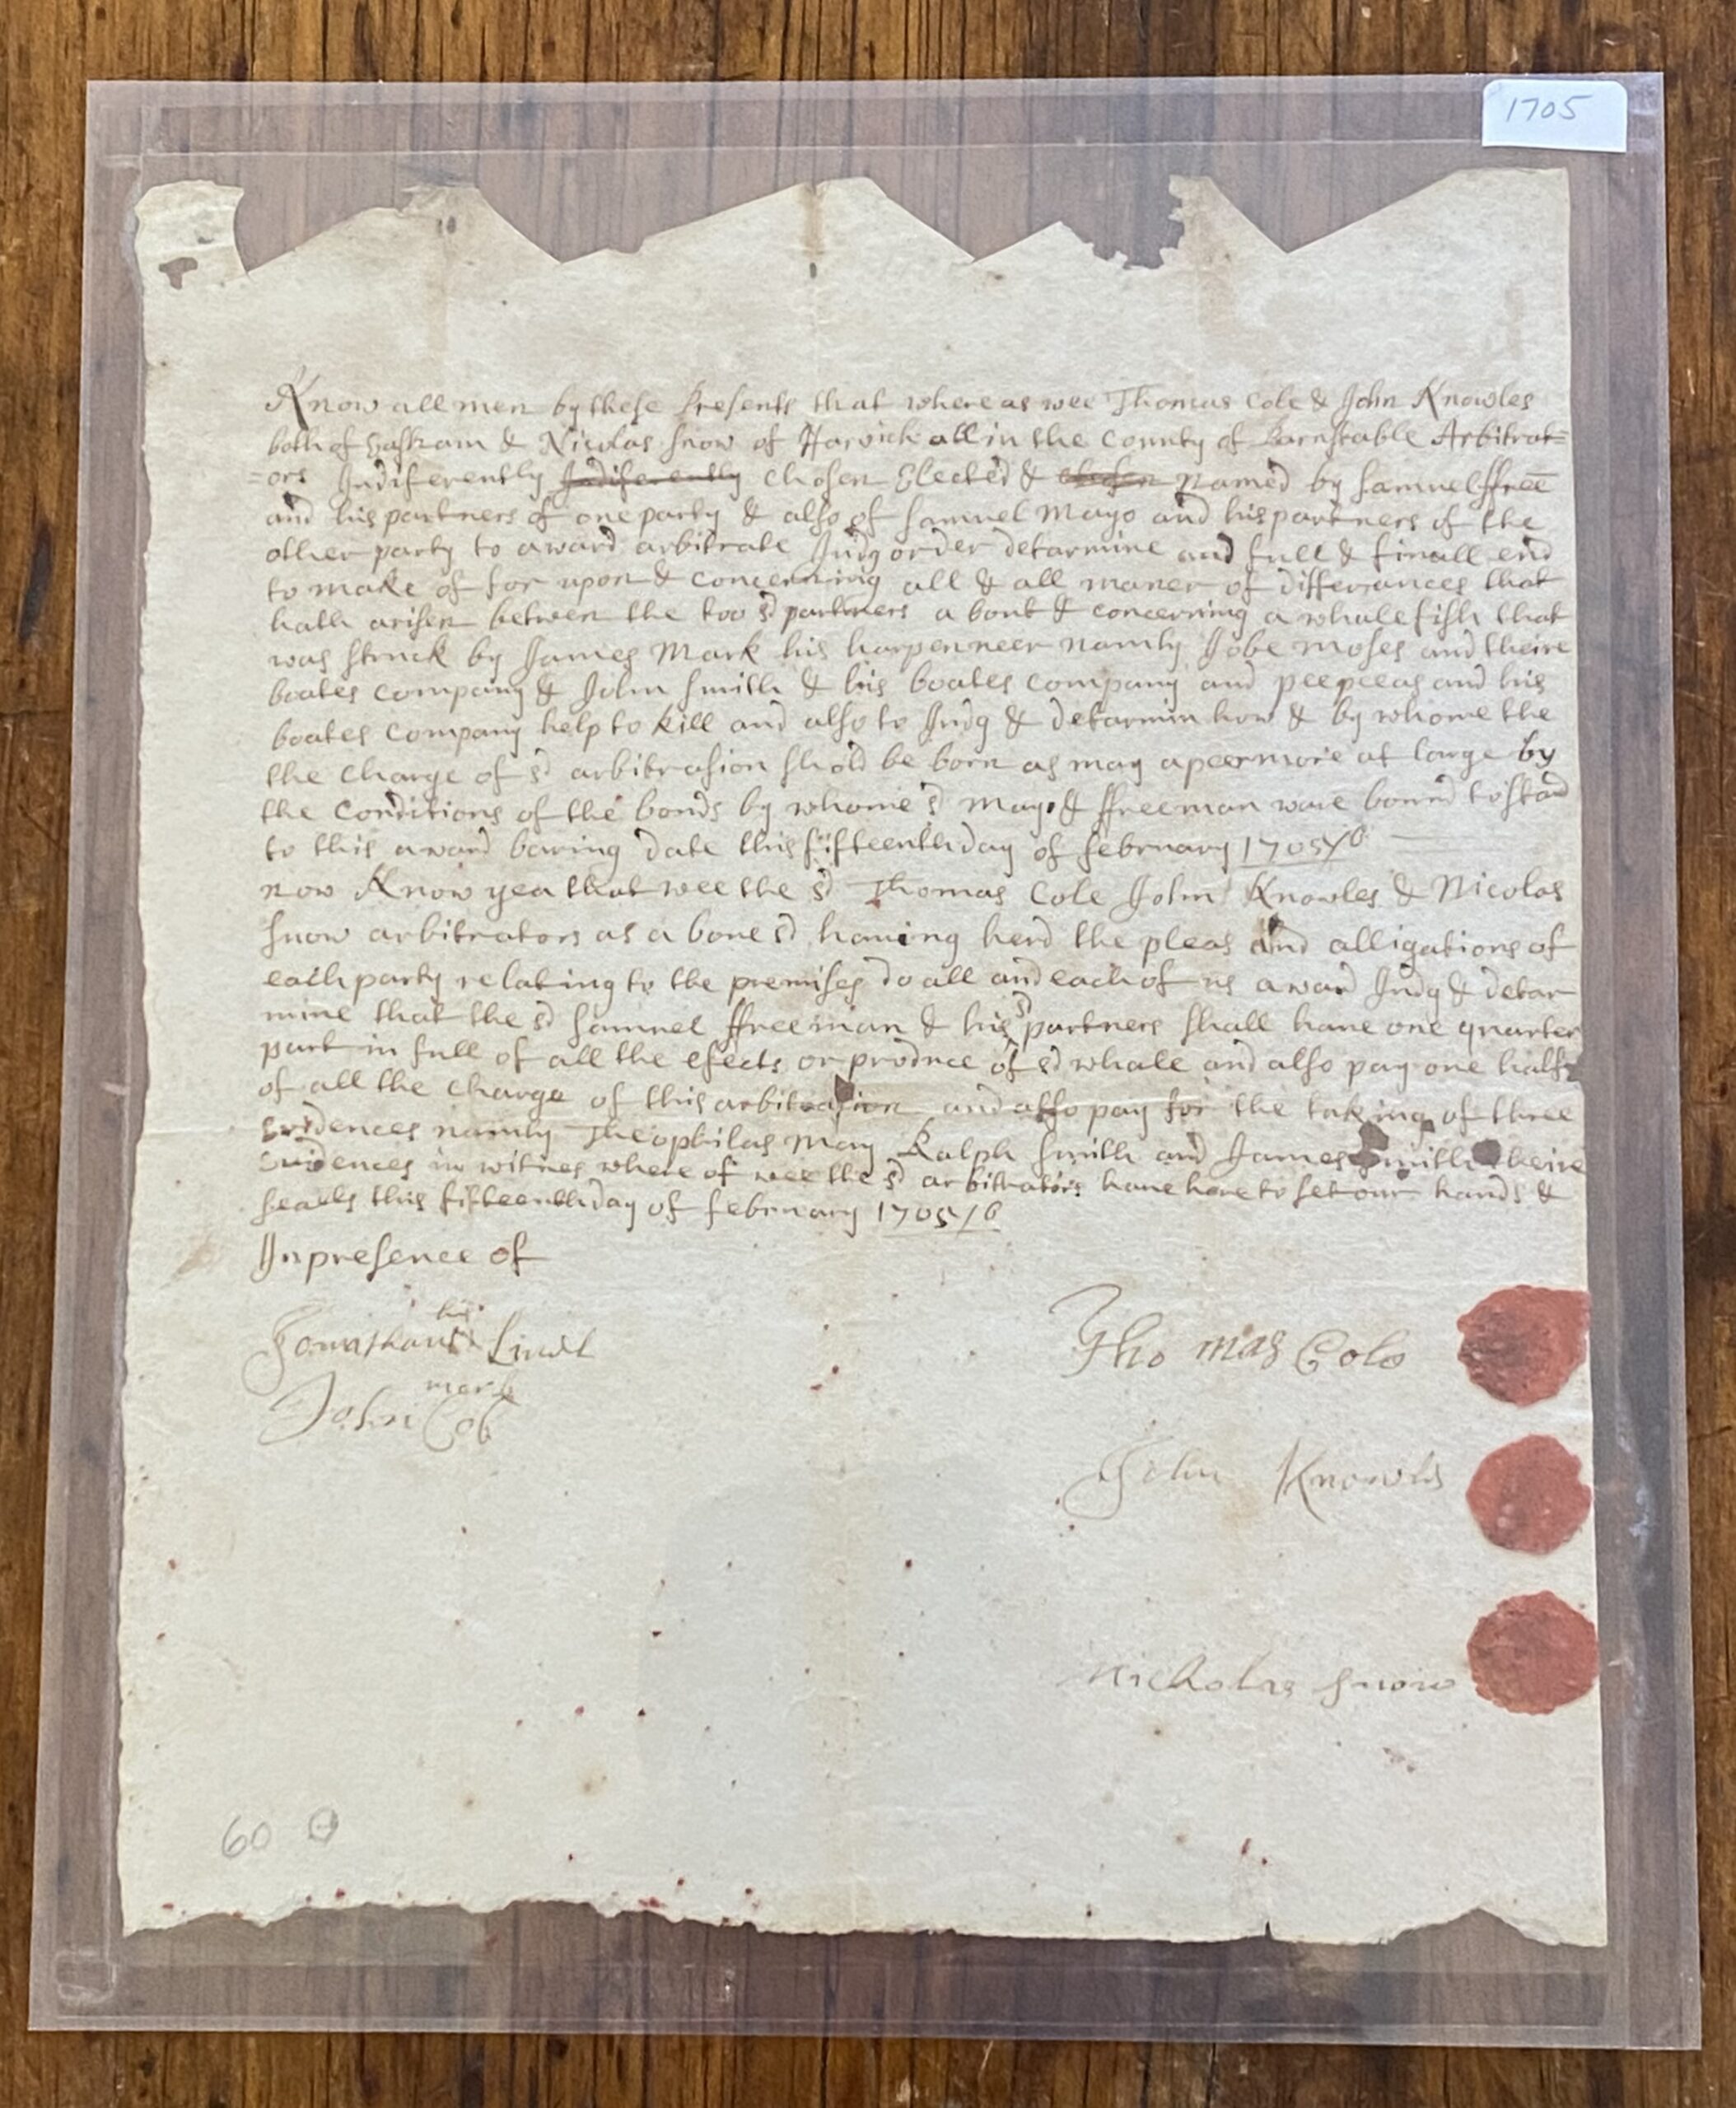 1705
Know all men by these Presents that where as wee Thomas Cole & John Knowles
both of Eastham & Nicolas Snow of Harwich all in the County of Barnstable Arbitrat=
=ors Indiferently Indiferently chosen Elected & chosen named by Samuel ffree
and his partners of one party & also of Samuel Mayo and his partners of the
other party to award arbitrate Judg order detarmine and full & finall end
to make of for upon & concerning all & all maner of differances that
hath arisen between the too sd partners a bout & concerning a whale fish that
was struck by James Mark his harpenneer namly Jobe Moses and theire
boates company & John Smith & his boates company and peepeeas and his
boates company help to kill and also to Judg & detarmin how & by whome the
the charge of sd arbitrasion shold be born as may apeer more at large by
the Conditions of the bonds by whome sd Mayo & ffreeman ware bound to stand
to this award baring date this fifteenth day of february 1705/6
now Know yea that wee the sd Thomas Cole John Knowles & Nicolas
Snow arbitrators as a bove sd haveing herd the pleas and alligations of
each party relating to the premises do all and each of us award Judg & detar
mine that the sd Samuel ffreeman & his sd partners shall have one quarter
part in full of all the efects or produce of sd whale and also pay one halfe
of all the charge of this arbitrasion and also pay for the taking of three
evidences namly Theophilas May Ralph Smith and James Smith theire
evidences in witnes where of wee the sd arbitrators have here to set our hands &
seales this fifteenth day of february 1705/6
In presence of
his
Jonathan Linel
mark
John Cob
Thomas Cole
John Knowls
Nicholas Snow
60